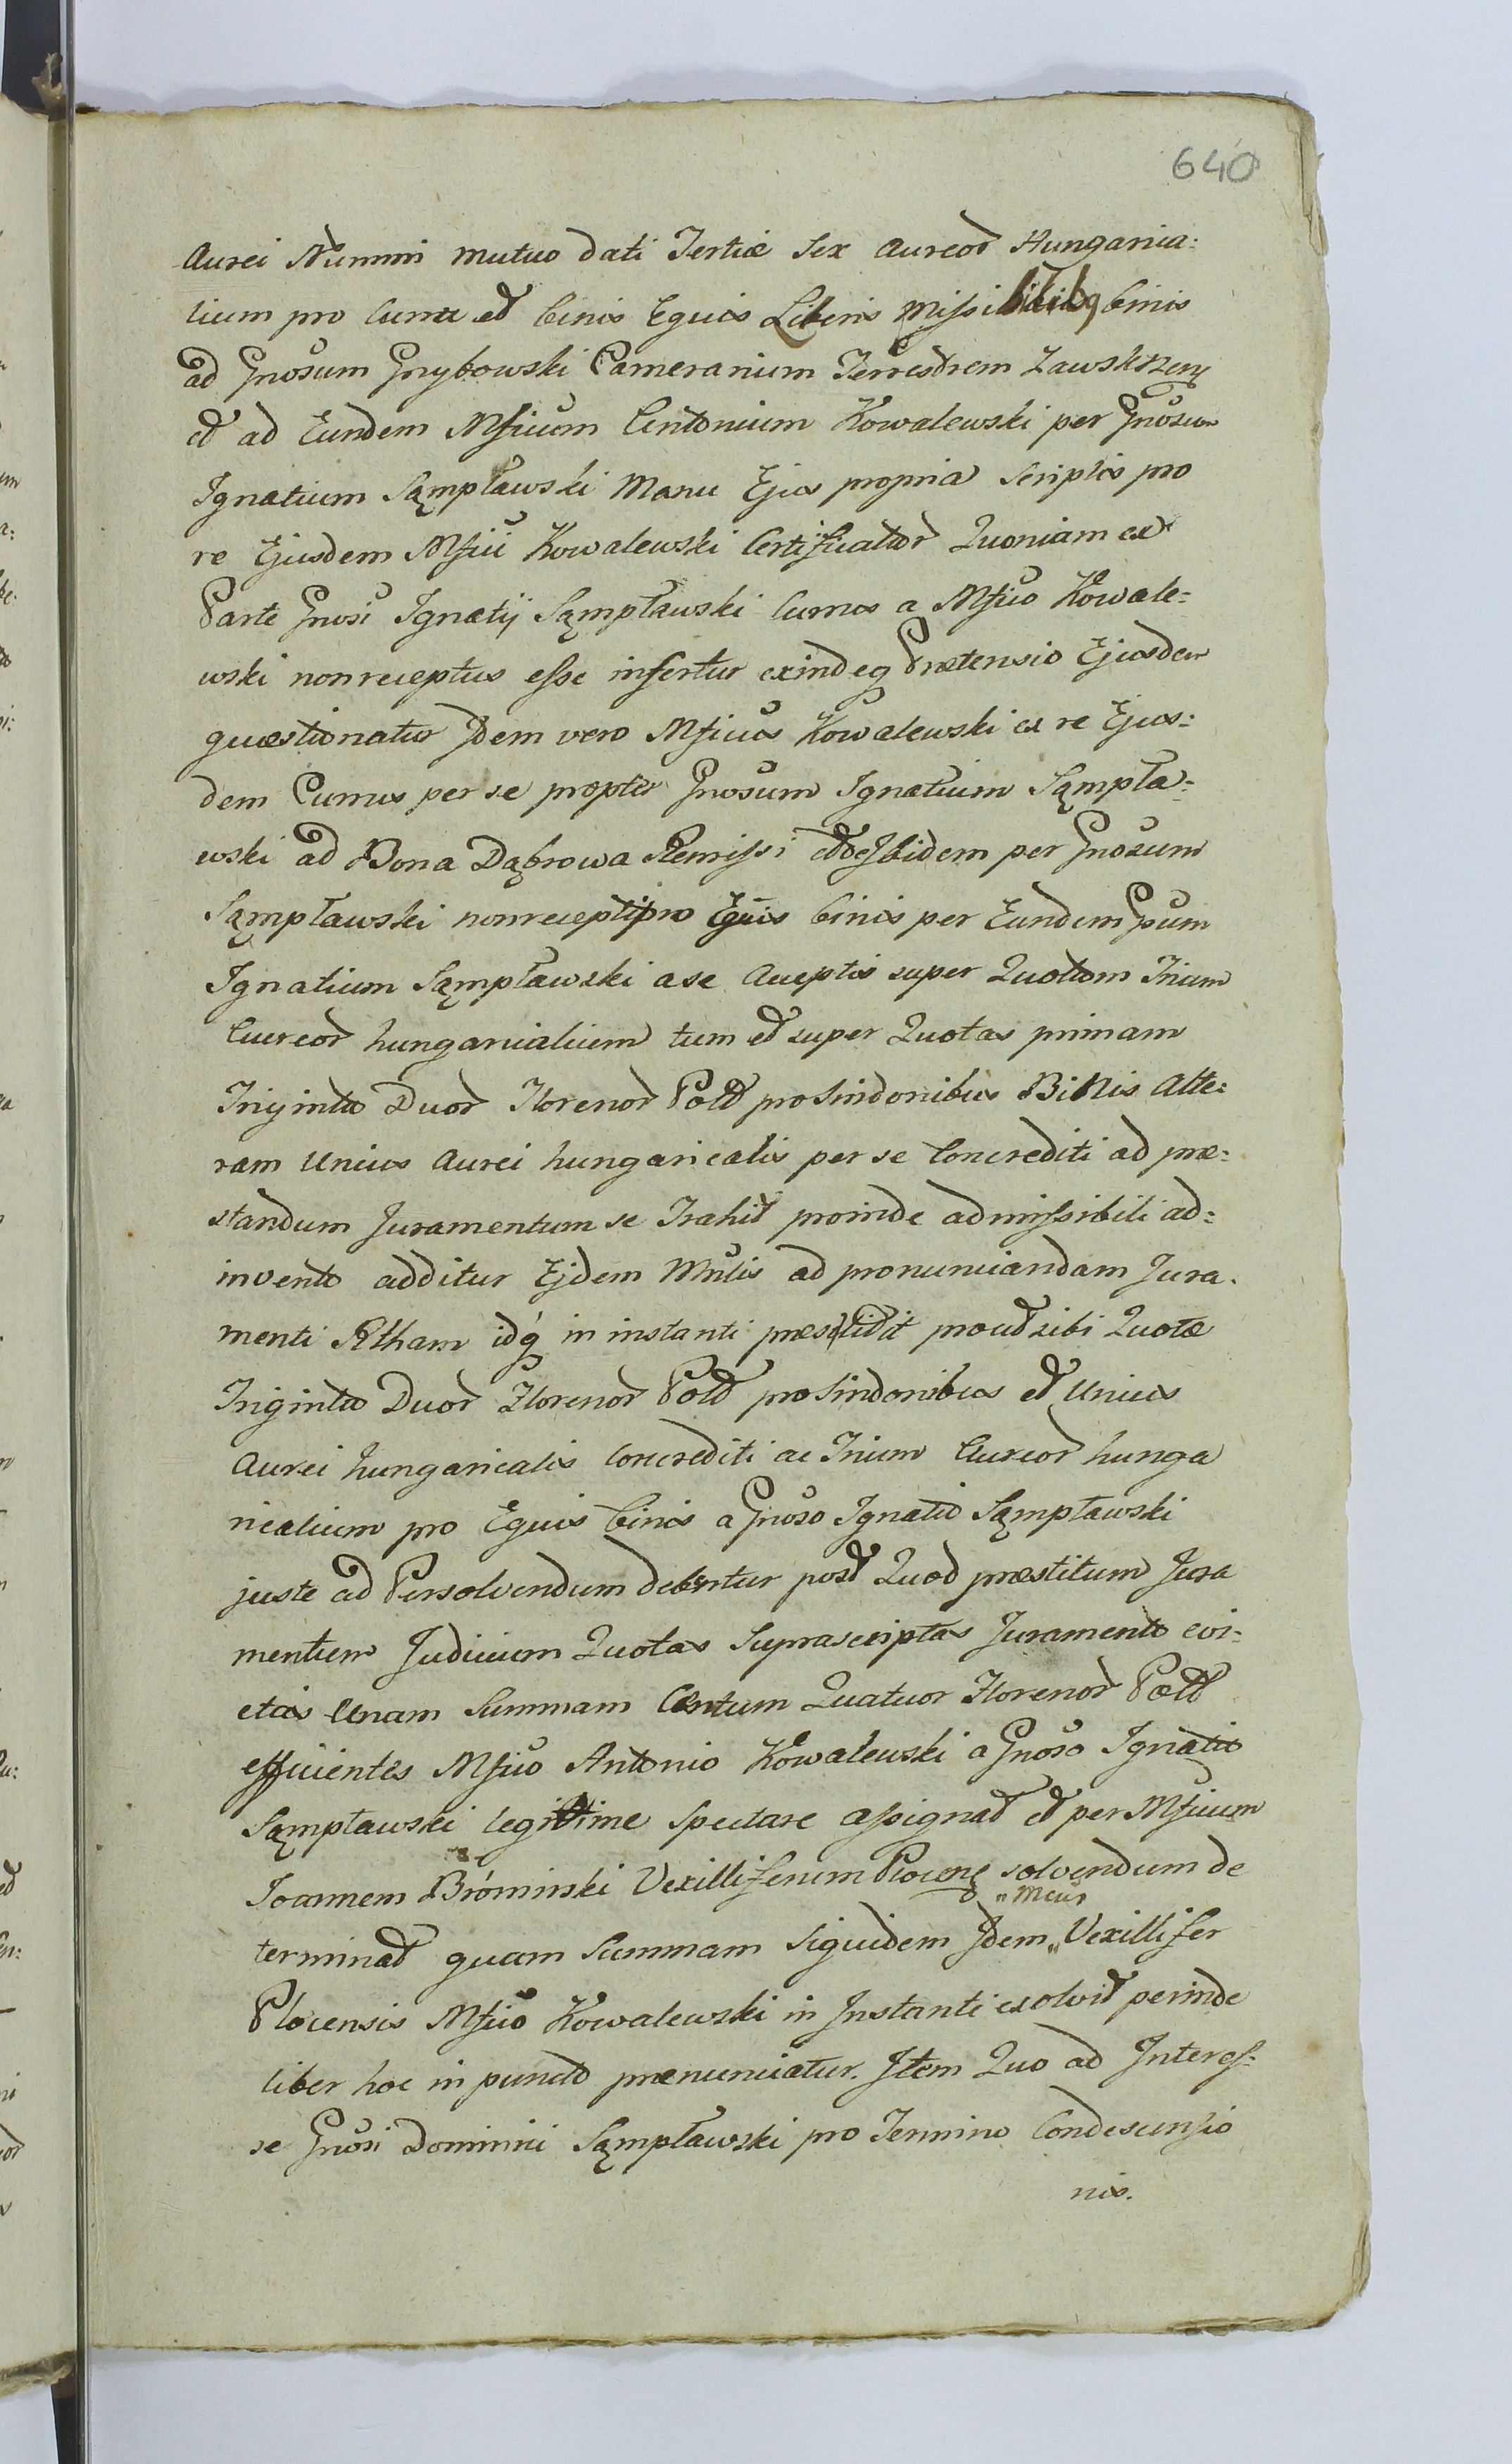 640
Aurei Nummi mutuo dati Tertiæ Sex Aureor Hungaria:
lium pro Curru et binis Equis Literis Missilibusq binis
ad Gnosum Grybowski Camerarium Terrestrem Zawskrzen
et ad Eundem Mfium Antonium Kowalewski per Gnosum
Ignatium Sąmpławski Manu Ejus propria Scriptis pro
re Ejusdem Mfii Kowalewski Certificator Quoniam ex
Parte Gnosi Ignatij Sąmpławski Currus a Mfico Kowale=
wski nonreceptus esse infertur exindeq Prætensio Ejusdem
quæstionatur Idem vero Mficus Kowalewski ex re Ejus:
dem Currus per se propter Gnosum Ignatium Sąmpła=
wski ad Bona Dąbrowa Remissi et Ibidem per Gnosum
Sąmpławski nonrecepti pro Equis binis per Eundem Gsum
Ignatium Sąmpławski a se Acceptis super Quotam Trium
Aureor hungarialium tum et super Quotas primam
Triginta Duor Florenor Poll pro Sindonibus Binis Alte:
ram Unius Aurei hungaricalis per se Concrediti ad præ:
standum Juramentum se Trahit proinde admissibili ad:
invento additur Ejdem Mnlis ad pronunciandam Jura.
menti Rtham idq in instanti præstitit prout sibi Quotæ
Triginta Duor Florenor Poll pro Sindonibus et Unius
Aurei hungaricalis Concrediti ac Trium Aureor hunga
ricalium pro Equis binis a Gnoso Ignatio Sąmpławski
juste ad Persolvendum debentur post Quod præstitum Jura
mentum Judicium Quotas Suprascriptas Juramento evi:
ctas Unam Summam Centum Quatuor Florenor Poll
efficientes Mfico Antonio Kowalewski a Gnoso Ignatio
Sąmpławski legitime Spectare assignat et per Mficum
Joannem Bromirski Vexilliferum Plocens solvendum de
terminat quam Summam Siquidem Idem „Mcus Vexillifer
Plocensis Mfico Kowalewski in Instanti exolvit perinde
liber hoc in puncto prænunciatur. Item Quo ad Interes:
se Gnosi Dominici Sąmpławski pro Termino Condescensio
nis.